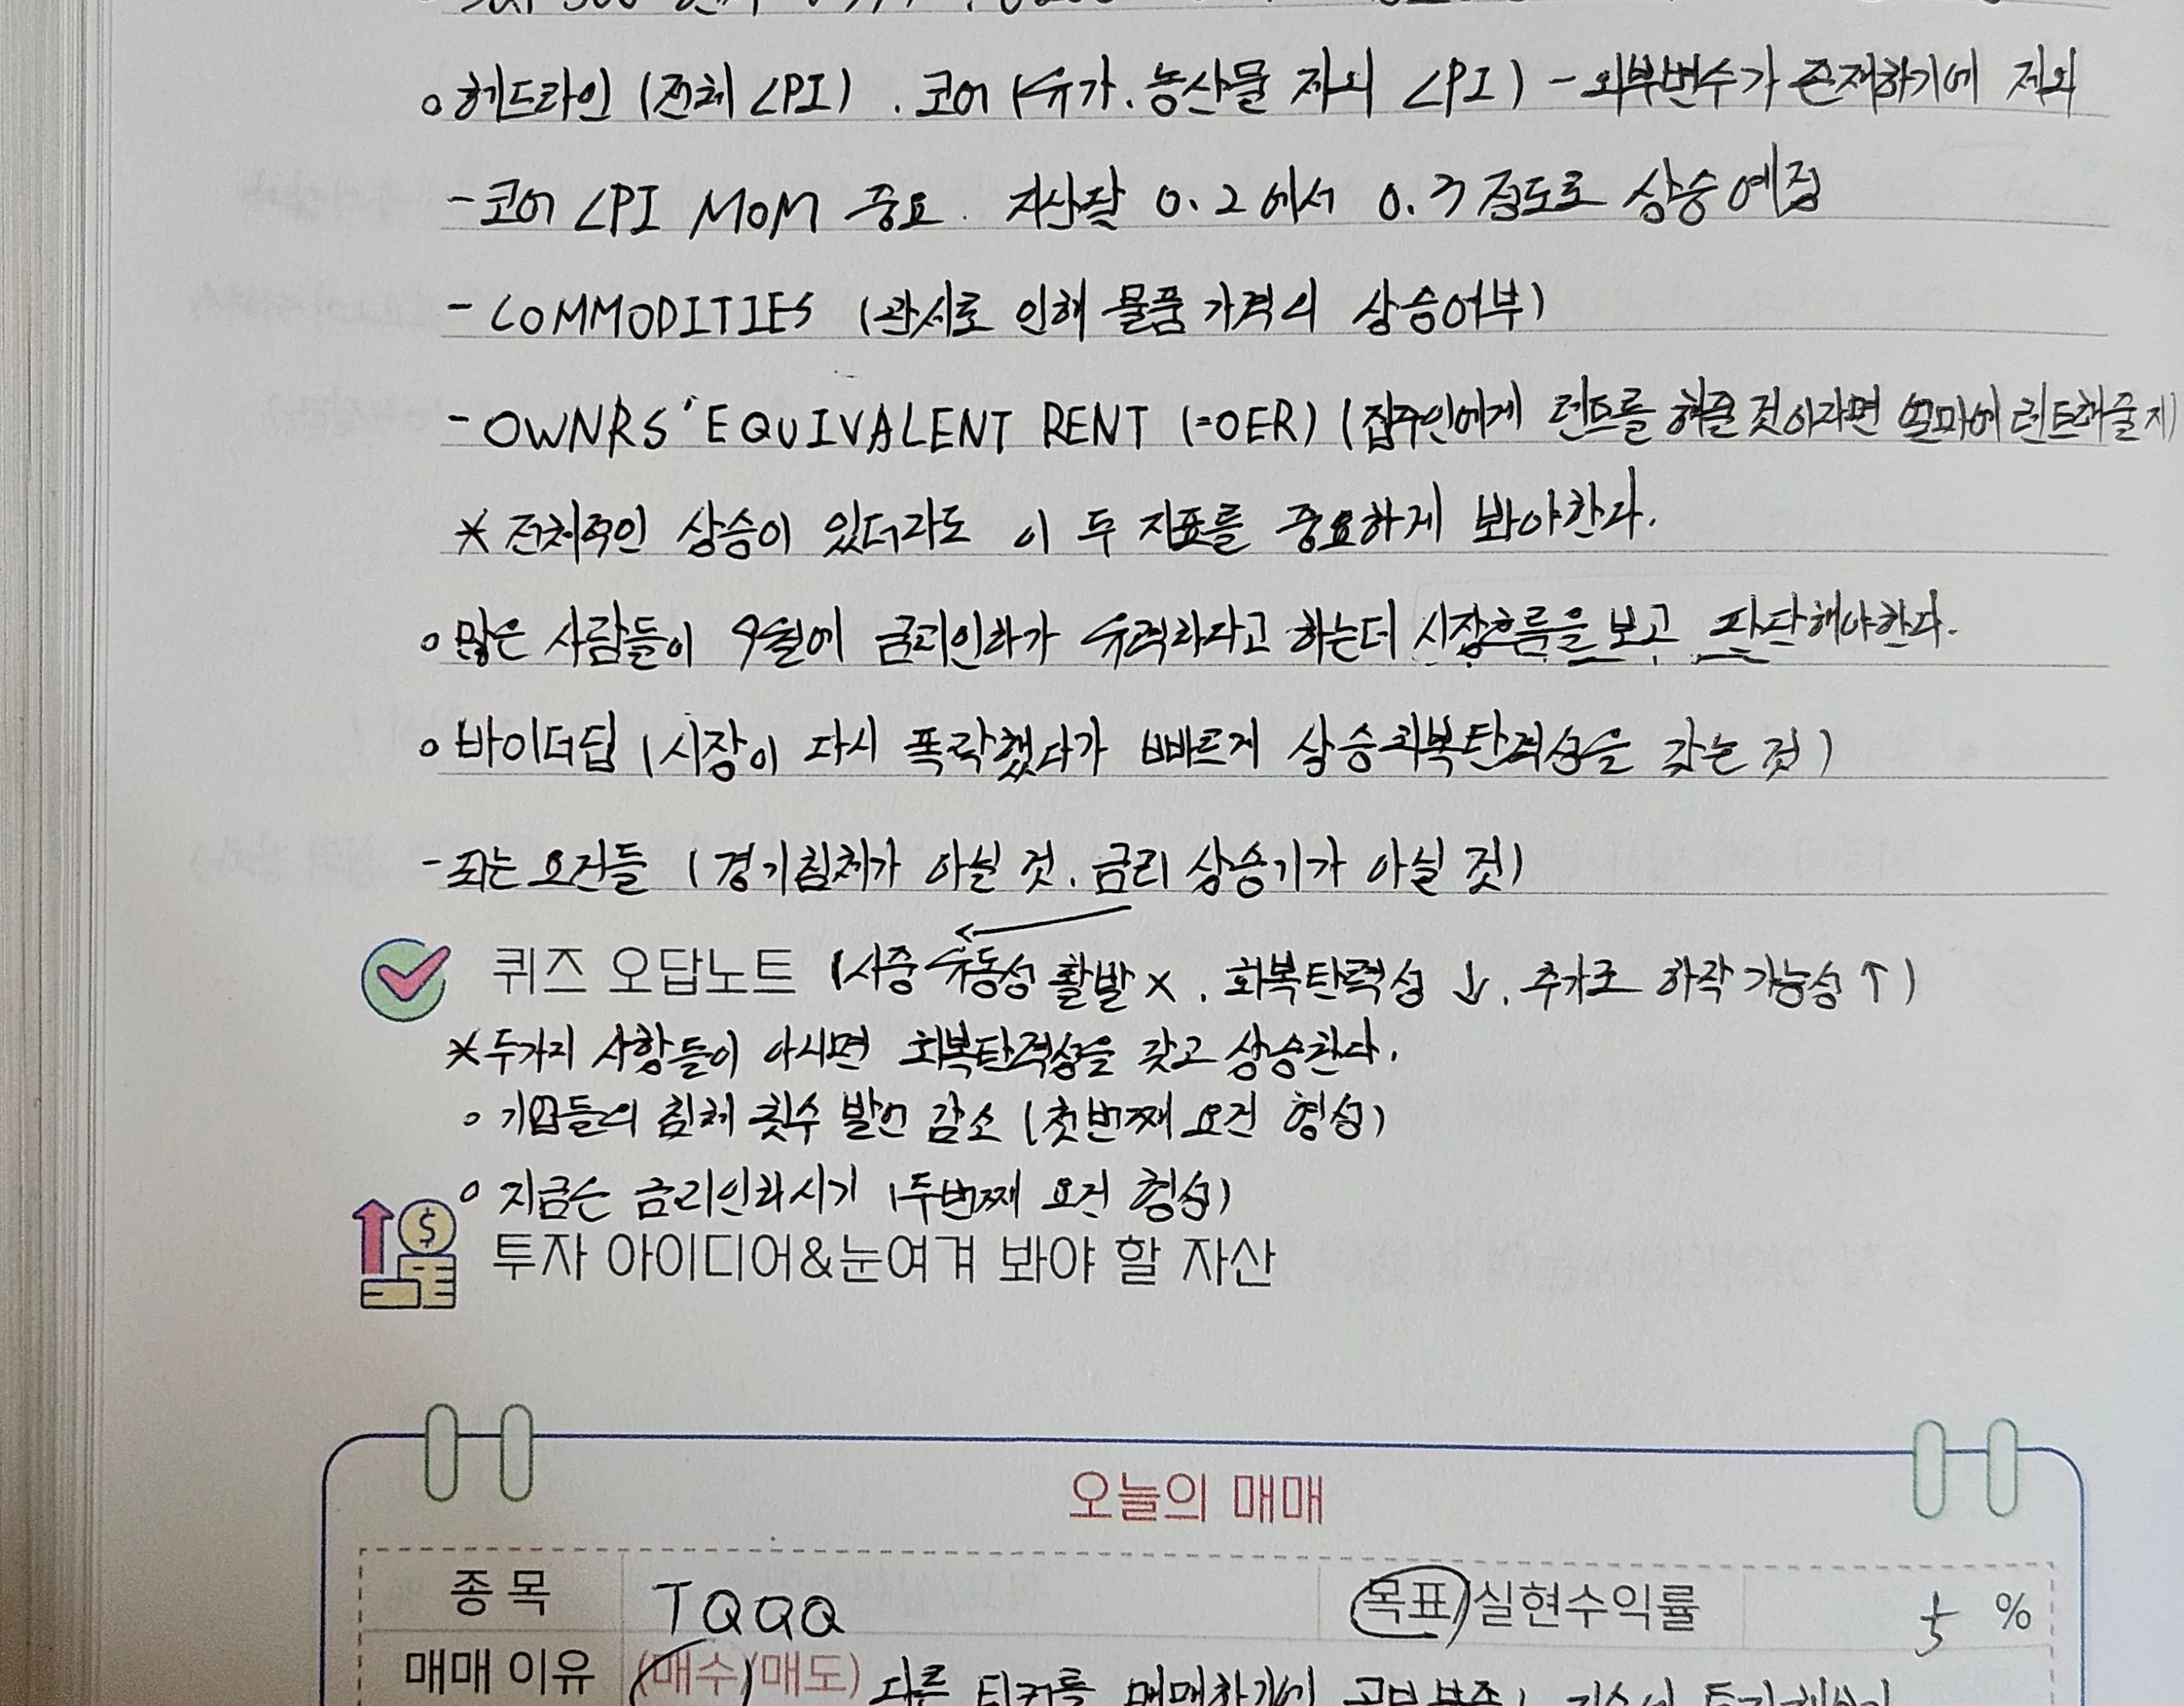 헤드라인 (전체 CPI), 코어 (유가, 농산물 제외 CPI) - 외부변수가 존재하기에 제외
- 코어 CPI MOM 중요. 지난달 0.2에서 0.3정도로 상승예정
- COMMODITIES (관세로 인해 물품가격의 상승여부)
- OWNRS' EQUIVALENT RENT (=OER) (집주인에게 렌트를 해준 것이라면 얼마에 렌트해줄지)
* 전체적인 상승이 있더라도 이 두 지표를 중요하게 봐야한다.
많은 사람들이 9월에 금리인하가 유력하다고 하는데 시장흐름을 보고 판단해야한다.
바이더딥 (시장이 다시 폭락했다가 빠르게 상승회복탄력성을 갖는 것)
- 되는 요건들 (경기침체가 아닐 것, 금리 상승기가 아닐 것)
퀴즈 오답노트 (시중 유동성 활발 X, 회복탄력성 ↓, 추가로 하락 가능성 ↑)
* 두가지 사항들이 아니면 회복탄력성을 갖고 상승한다.
기업들의 침체 횟수 발언 감소 (첫번째 요건 형성)
지금은 금리인하시기 (두번째 요건 형성)
투자 아이디어&눈여겨 봐야 할 자산
오늘의 매매
종목 TQQQ 목표/실현수익률 5 %
매매 이유 (매수/매도) 다른 티커를 매매하기에